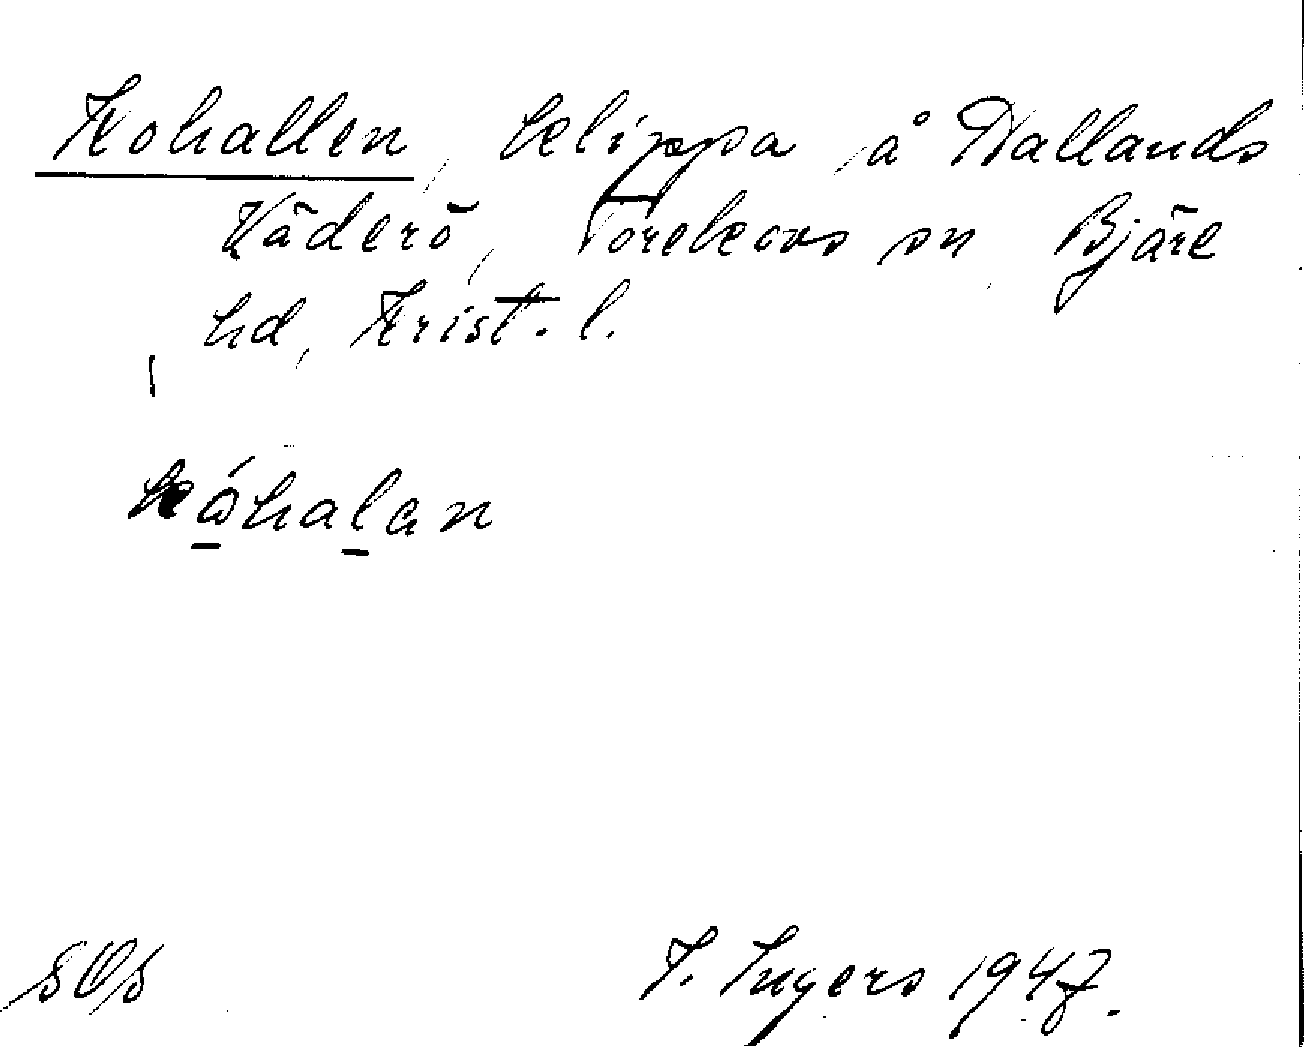 Kohallen, klippa å Hallands
Väderö, Torekovs sn Bjäre
hd, Krist. l.
kåhalan
SOS
I. Ingers 1947.